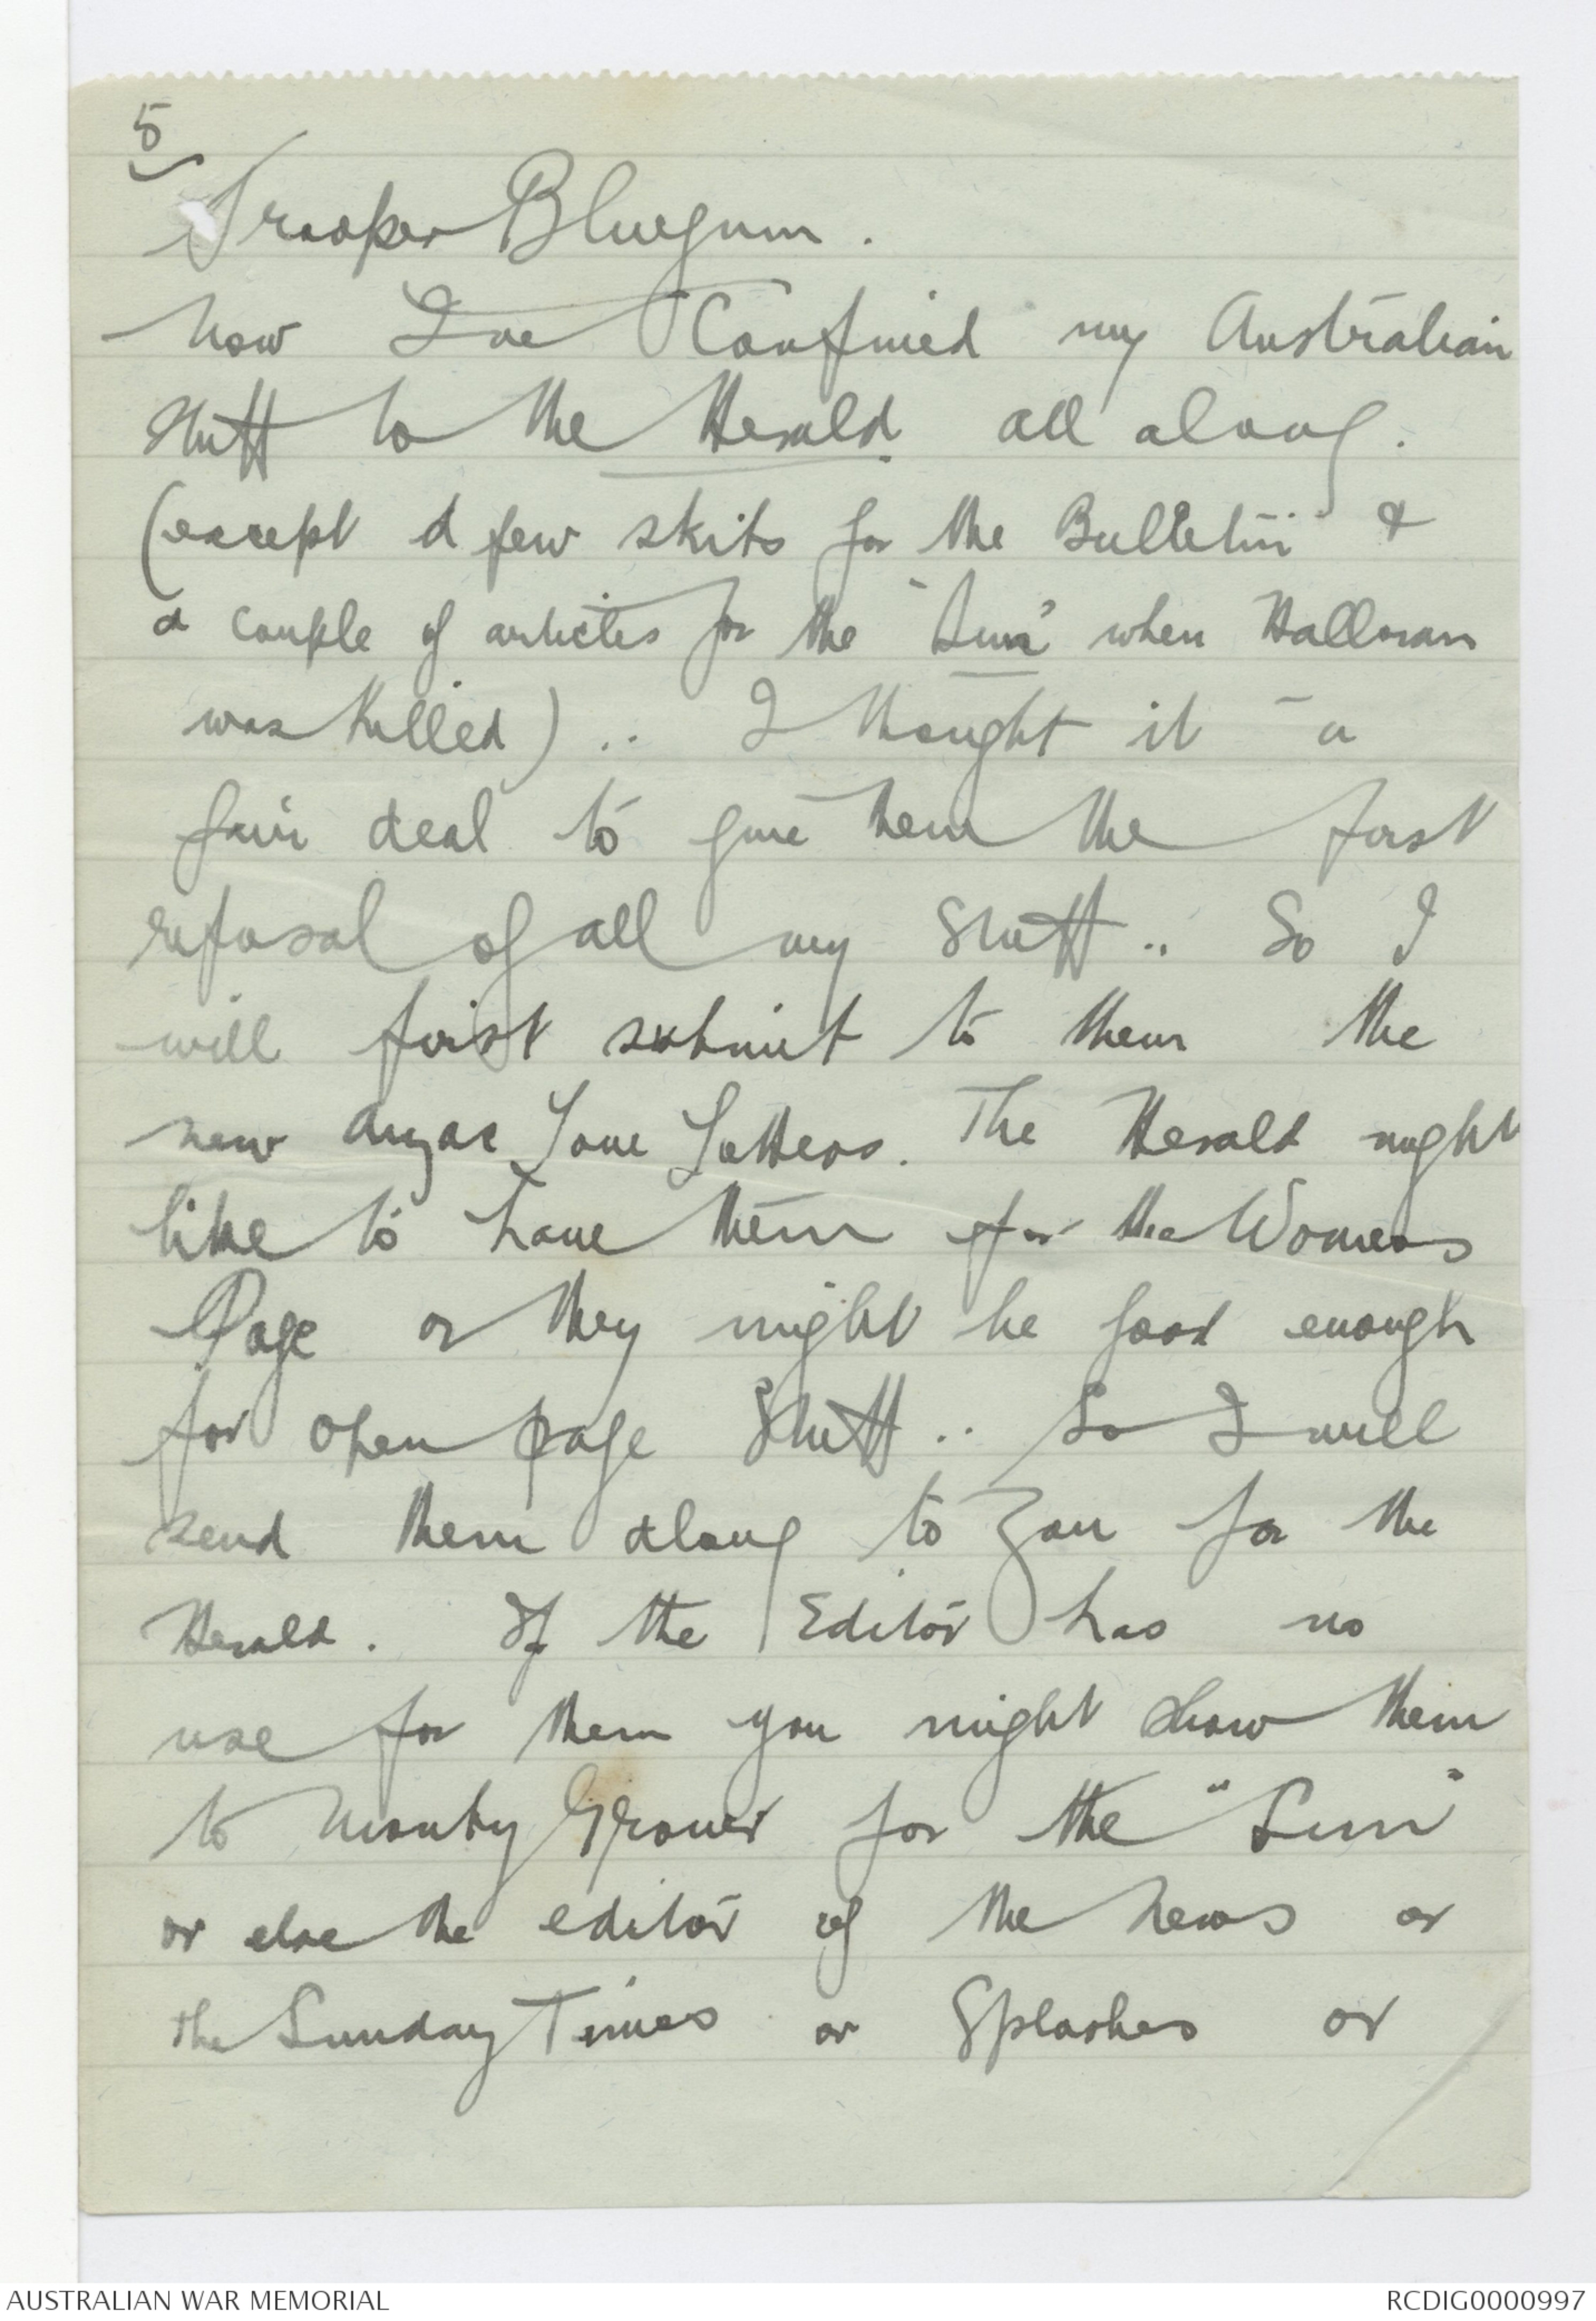 5
Trooper Bluegum.
Now I've Confined my Australian
Stuff to the Herald all along.
(except a few skits for the Bulletin &
a couple of articles for the "Sun" when Halloran
was killed) .. I thought it a
fair deal to give them the first
refusal of all my stuff .. So I
will first submit to them the
new Anzac Love Letters. The Herald might
like to have them for the Womens
Page or they might be good enough
for open page Stuff .. So I will
send them along to you for the
Herald. If the Editor has no
use for them you might show them
to Monty Grover for the "Sun"
or else the editor of the News or
the Sunday Times or Splashes or
AUSTRALIAN WAR MEMORIAL
RCDIG0000997